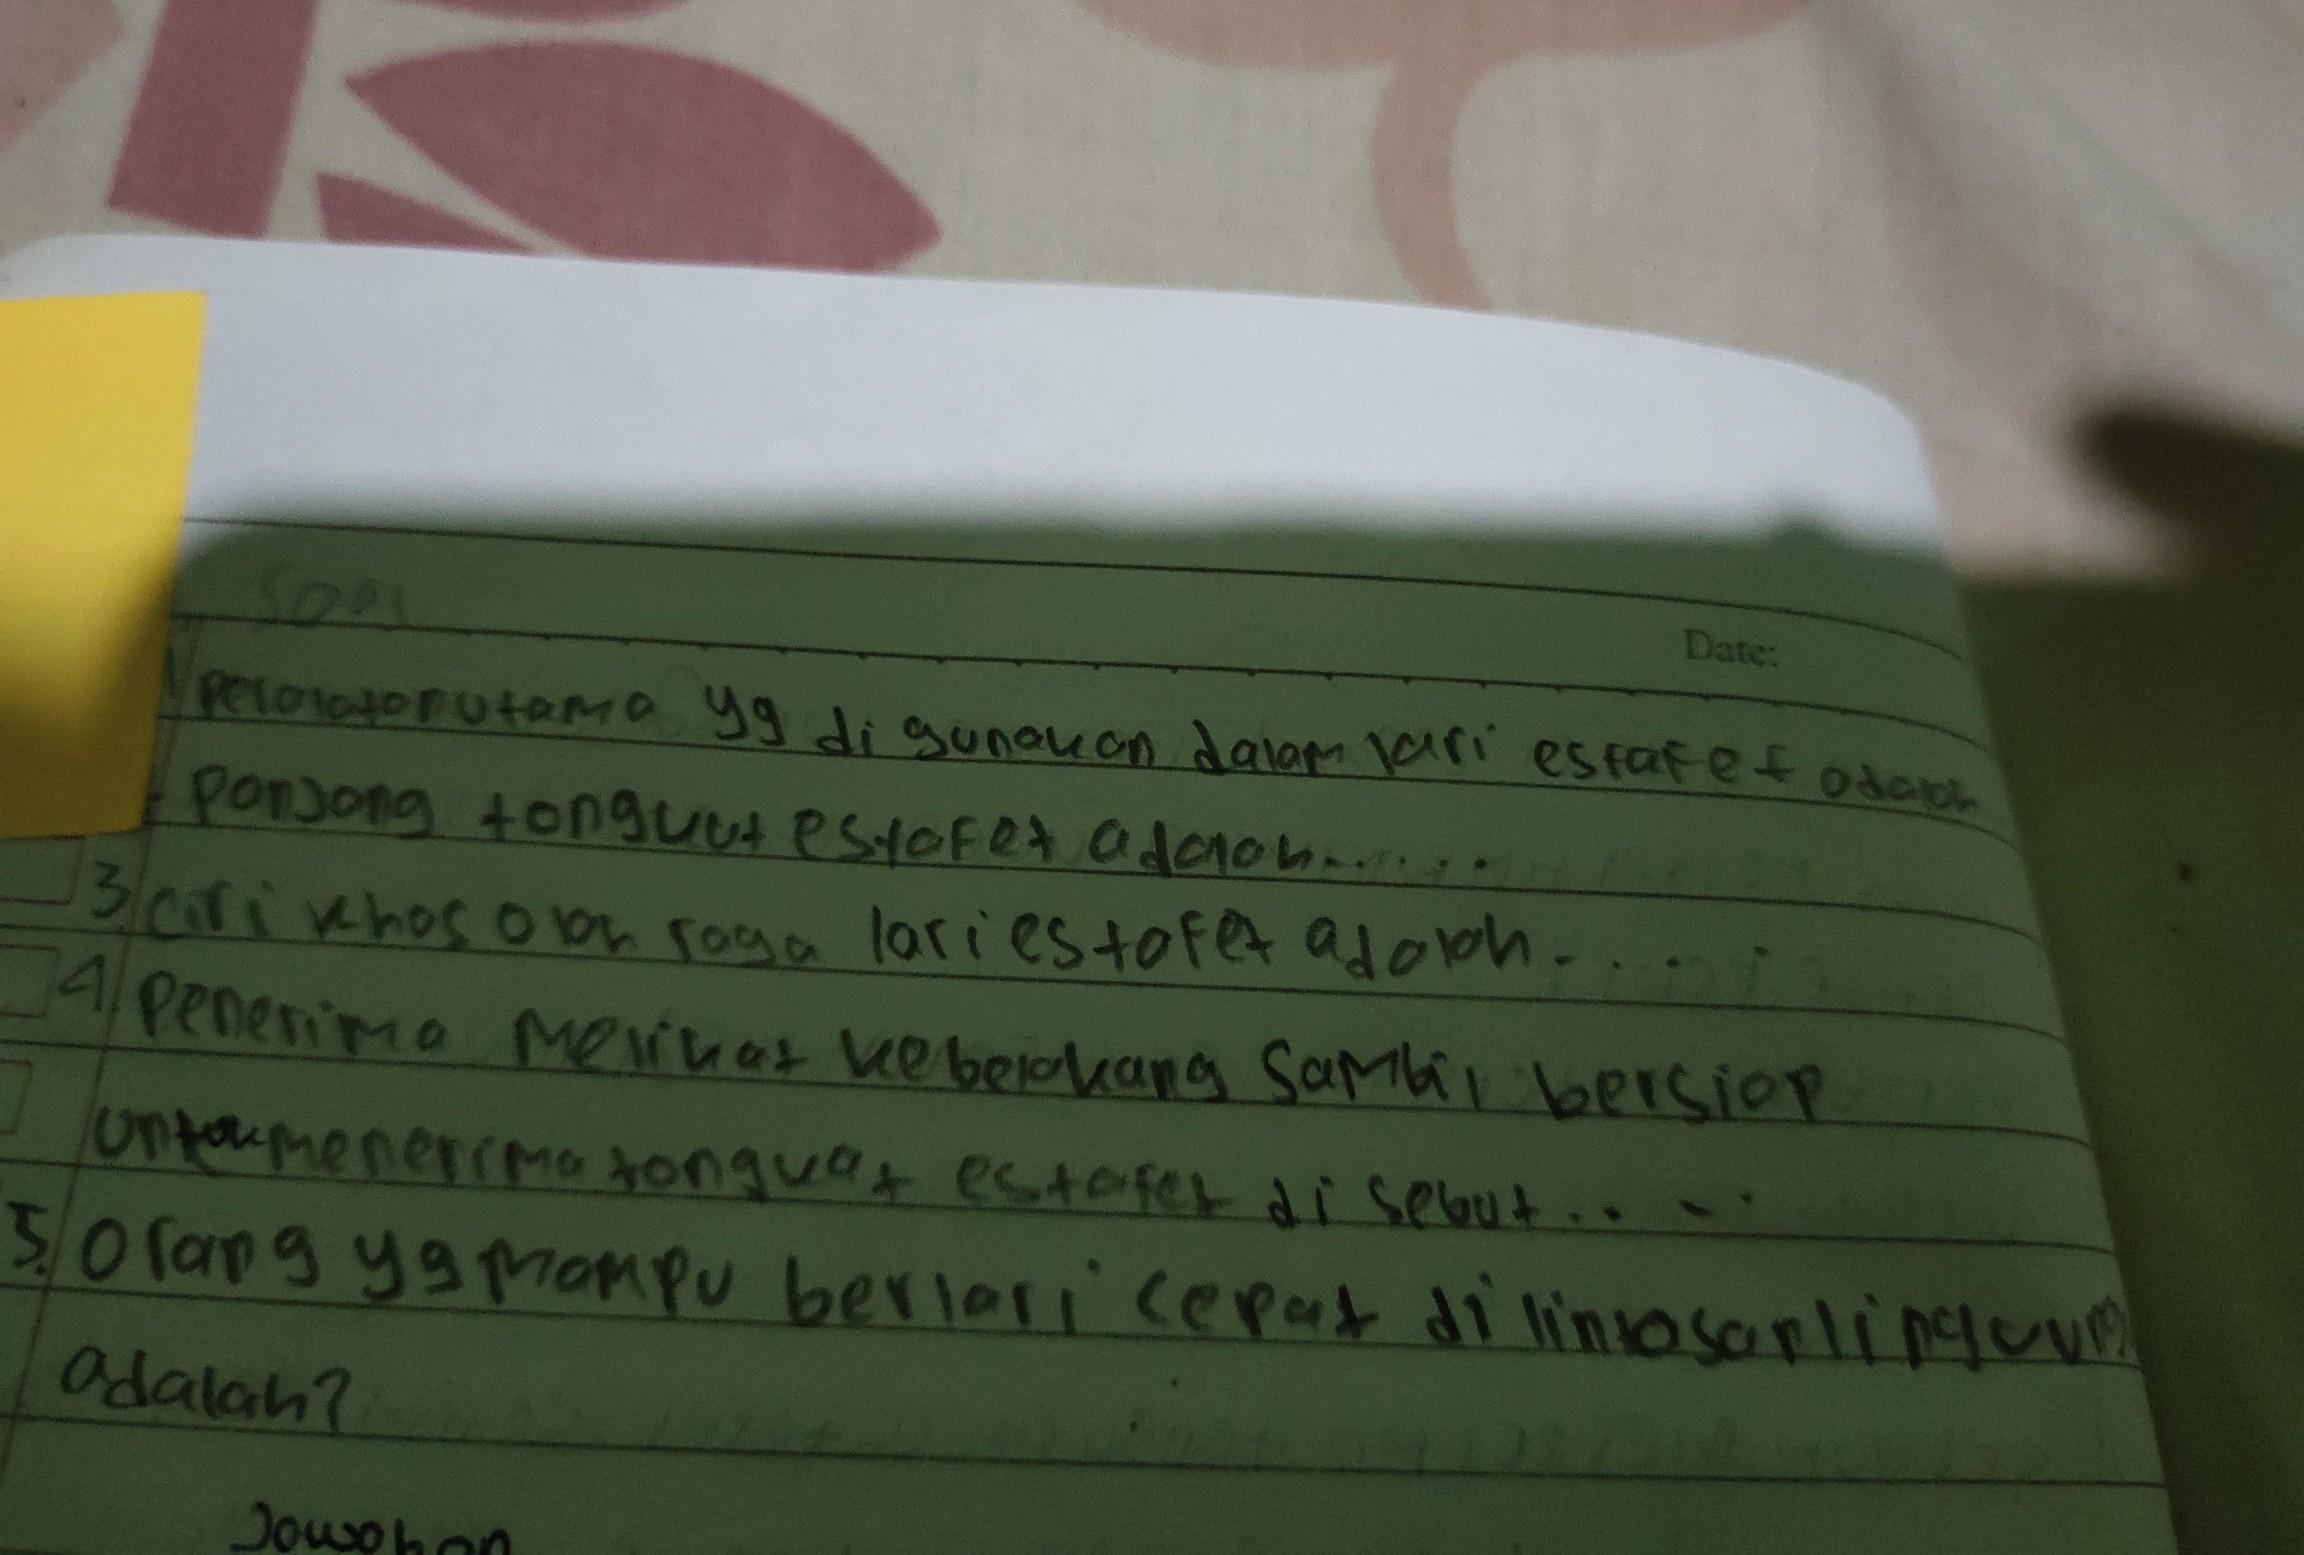 Soal
Date:
1 peralatan utama yg di gunakan dalam lari estafet adalah
panjang tongkat estafet adalah......
3. ciri khas olah raga lari estafet adalah.....
4. penerima melihat kebelakang sambil bersiap
untuk menerima tongkat estafet di sebut....
5. Orang yg mampu berlari cepat di lintasan lingkun
adalah?
Jawaban